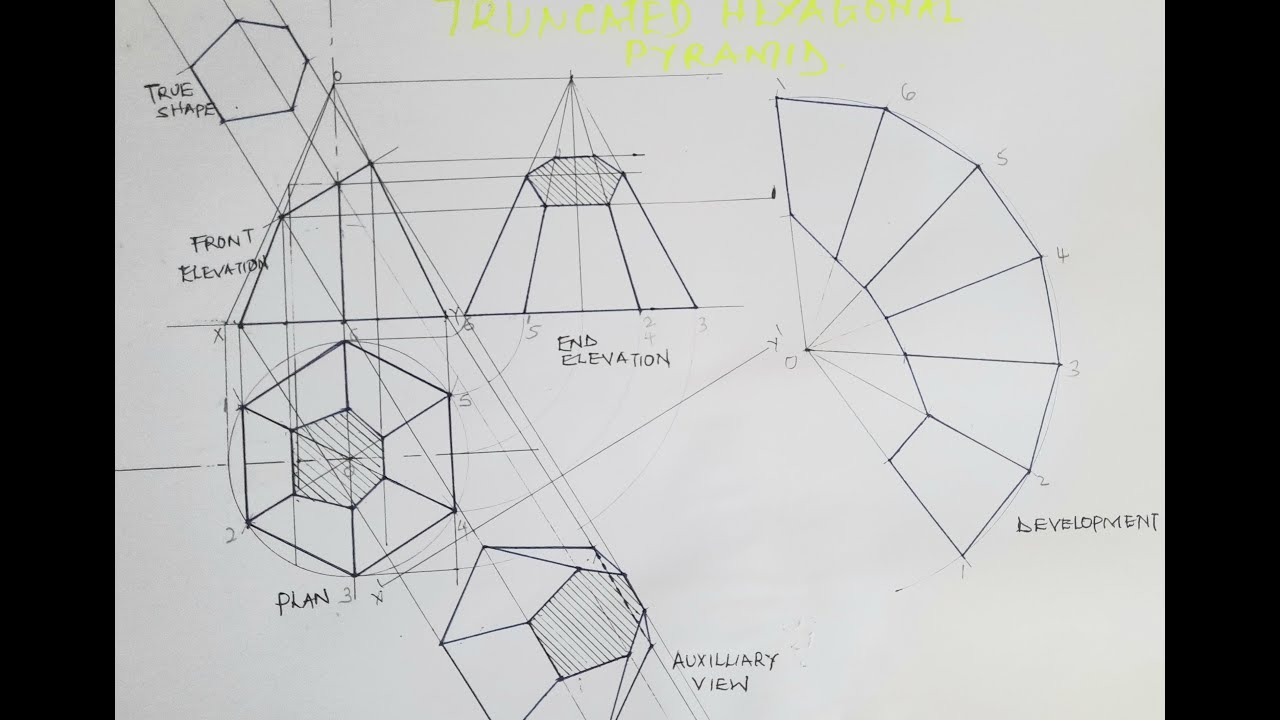 TRUNCATED HEXAGONAL
PYRAMID.
TRUE
SHAPE
O
1
6
5
4
3
2
1
O
DEVELOPMENT
FRONT
ELEVATION
X
Y
6
5
2
4
3
END
ELEVATION
6
1
5
2
4
3
O
PLAN
X'
Y'
AUXILLIARY
VIEW